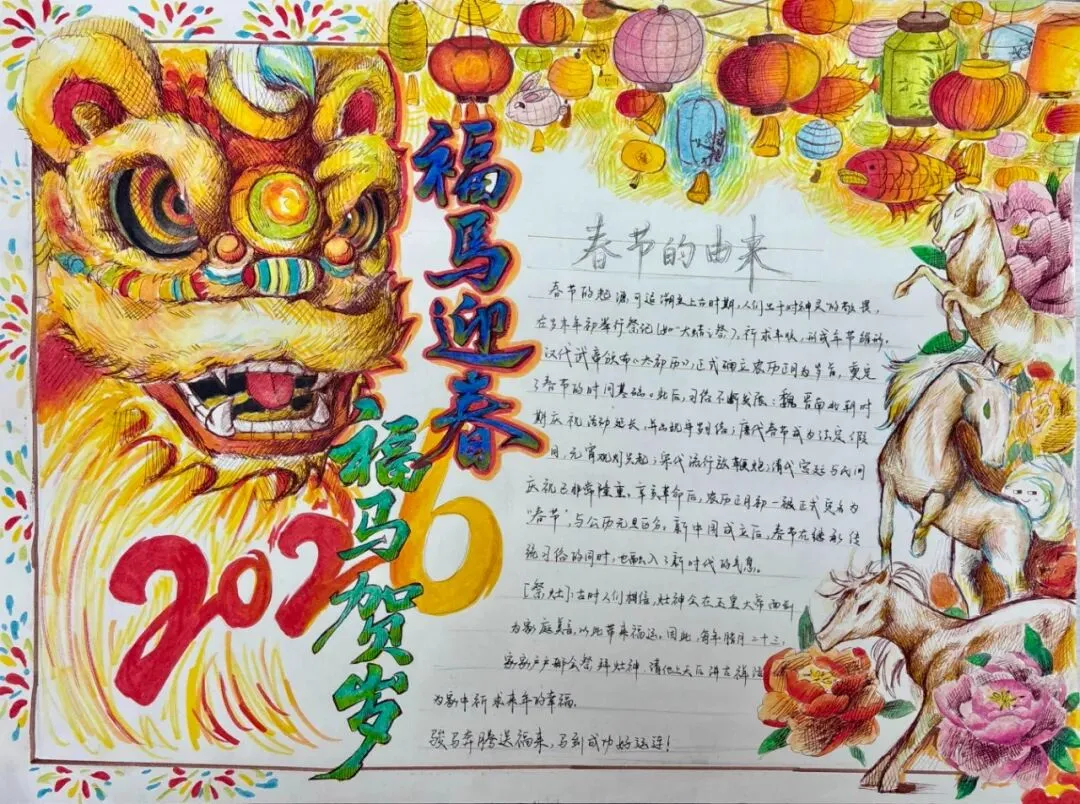 福马迎春
福马贺岁
2026
春节的由来
春节的起源可追溯至上古时期,人们出于对神灵的敬畏,
在岁末年初举行祭祀(如"大蜡之祭"),祈求丰收,形成年节雏形。
汉代武帝颁布《太初历》,正式确立农历正月为岁首,奠定
了春节的时间基础。此后,习俗不断发展:魏晋南北朝时
期庆祝活动延长,并出现年别俗;唐代春节成为法定假
日,元宵观灯兴起;宋代流行放鞭炮;清代宫廷与民间
庆祝已非常隆重。辛亥革命后,农历正月初一被正式定名为
"春节",与公历元旦区分。新中国成立后,春节在继承传
统习俗的同时,也融入了新时代的气息。
[祭灶]:古时人们相信,灶神会在玉皇大帝面前
为家庭美言,以此带来福运。因此,每年腊月二十三,
家家户户都会祭拜灶神,请他上天后讲吉祥话
为家中祈求来年的幸福。
骏马奔腾送福来,马到成功好运连!